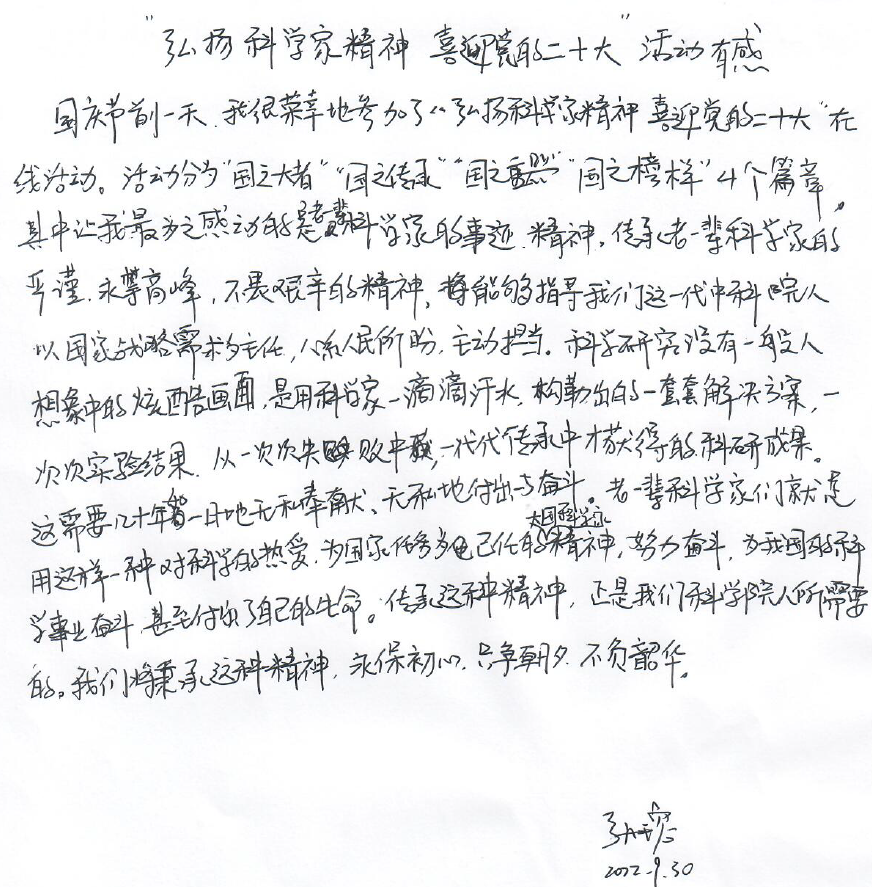 "弘扬科学家精神 喜迎党的二十大"活动有感
国庆节前一天,我很荣幸地参加了"弘扬科学家精神 喜迎党的二十大"在
线活动。活动分为"国之大者""国之传承""国之""国之榜样"4个篇章,
其中让我最为之感动的是老一辈科学家的事迹、精神,传承老一辈科学家的
严谨、永攀高峰,不畏艰辛的精神,将能够指导我们这一代中科院人
以国家战略需求为主任,人民所盼,主动担当。科学研究没有一般人
想象中的炫酷画面,是用科学家一滴滴汗水,构勒出的一套套解决方案,一
次次实验结果,从一次次失败中,一代代传承中才获得的科研成果。
这需要几十年如一日地无私奉献、无私地付出与奋斗。老一辈科学家们就是
用这样一种对科学的热爱,为国家任务为己任的大国科学家精神,努力奋斗,为我国的科
学事业奋斗,甚至付出了自己的生命。传承这种精神,还是我们科学院人所需要
的。我们将秉承这种精神,永保初心,只争朝夕,不负韶华。
2022.9.30